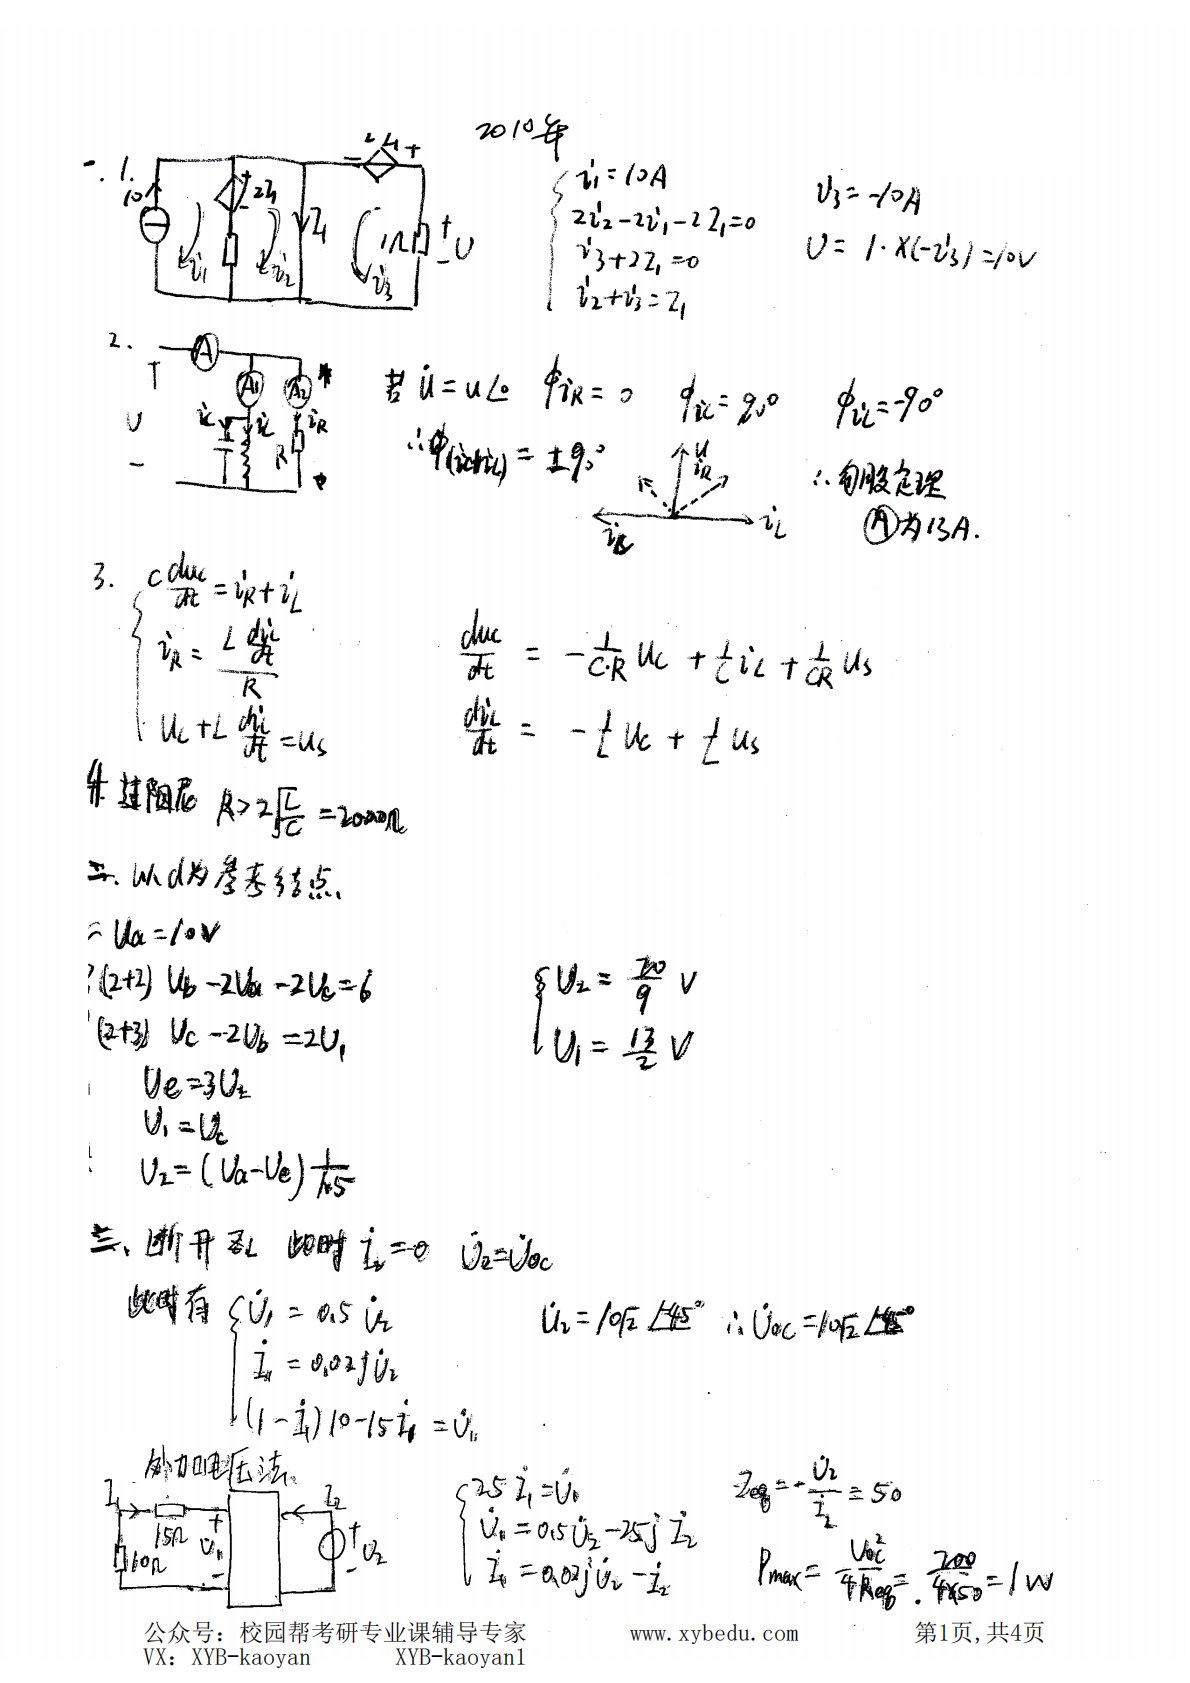 2010年
一.1.
10
2I₁
2I₁ - +
I₁
i₁
i₂
i₃
1Ω
+
U
-
i₁=10A
2i₂-2i₁-2I₁=0
i₃+2I₁=0
i₂+i₃=I₁
i₃=-10A
U=1·×(-i₃)=10V
2.
A
A₁
A₂
U
-
ic
iL
iR
R
若 U̇=U∠0 ϕiR=0 ϕic=90° ϕiL=-90°
∴ϕ(ic+iL)=±90°
U
iR
iL
∴勾股定理
Ⓐ为13A.
3.
C duc/dt=iR+iL
iR=(L diL/dt)/R
Uc+L diL/dt=us
duc/dt = -1/(C·R) Uc + 1/C iL + 1/(CR) Us
diL/dt = -1/L Uc + 1/L us
4. 过阻尼 R>2√(L/C)=2000Ω
二. 以d为参考结点
Ua=10V
(2+2) Ub-2Ua-2Uc=6
(2+3) Uc-2Ub=2U₁
Ue=3U₂
U₁=Uc
U₂=(Ua-Ue) 1/1.5
U₂=20/9 V
U₁=13/2 V
三、断开ZL 此时 İ₂=0 U̇₂=U̇oc
此时有
U̇₁=0.5U̇₂
İ₁=0.02jU̇₂
(1-İ₁)10-15İ₁=U̇₁
U̇₂=10√2∠-45° ∴U̇oc=10√2∠-45°
外加电压法
I₁
15Ω
10Ω
+
U̇₁
-
I₂
+
U₂
-
25İ₁=U̇₁
U̇₁=0.5U̇₂-25jİ₂
İ₁=0.02jU̇₂-İ₂
Zeq=-U̇₂/İ₂=50
Pmax=Uoc²/4Req=200/4×50=1W
公众号: 校园帮考研专业课辅导专家 www.xybedu.com 第1页,共4页
VX: XYB-kaoyan XYB-kaoyan1